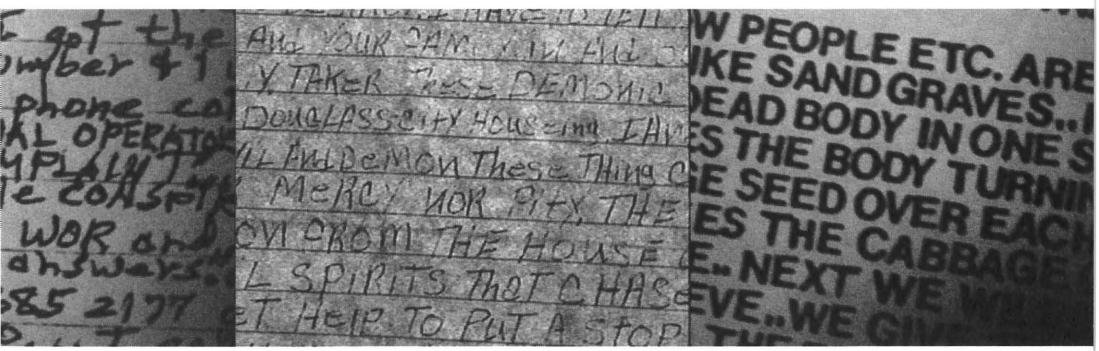 got the
umber 4 1
phone co
AL OPERATO
MPLAIN
e CONSPIR
WOR and
answers.
585 2177
AND YOUR
Y TAKER These DEMONIC
DOUGLASS-CITY HOUSING. I HAV
ILL AND DEMON These Thing C
MERCY NOR PITY. THE
ON FROM THE HOUSE
L SPIRITS THAT CHASE
ET HELP TO PUT A STOP
W PEOPLE ETC. ARE
IKE SAND GRAVES..
DEAD BODY IN ONE S
ES THE BODY TURNIN
GE SEED OVER EACH
ES THE CABBAGE
E.. NEXT WE WI
EVE..WE GIV
THE